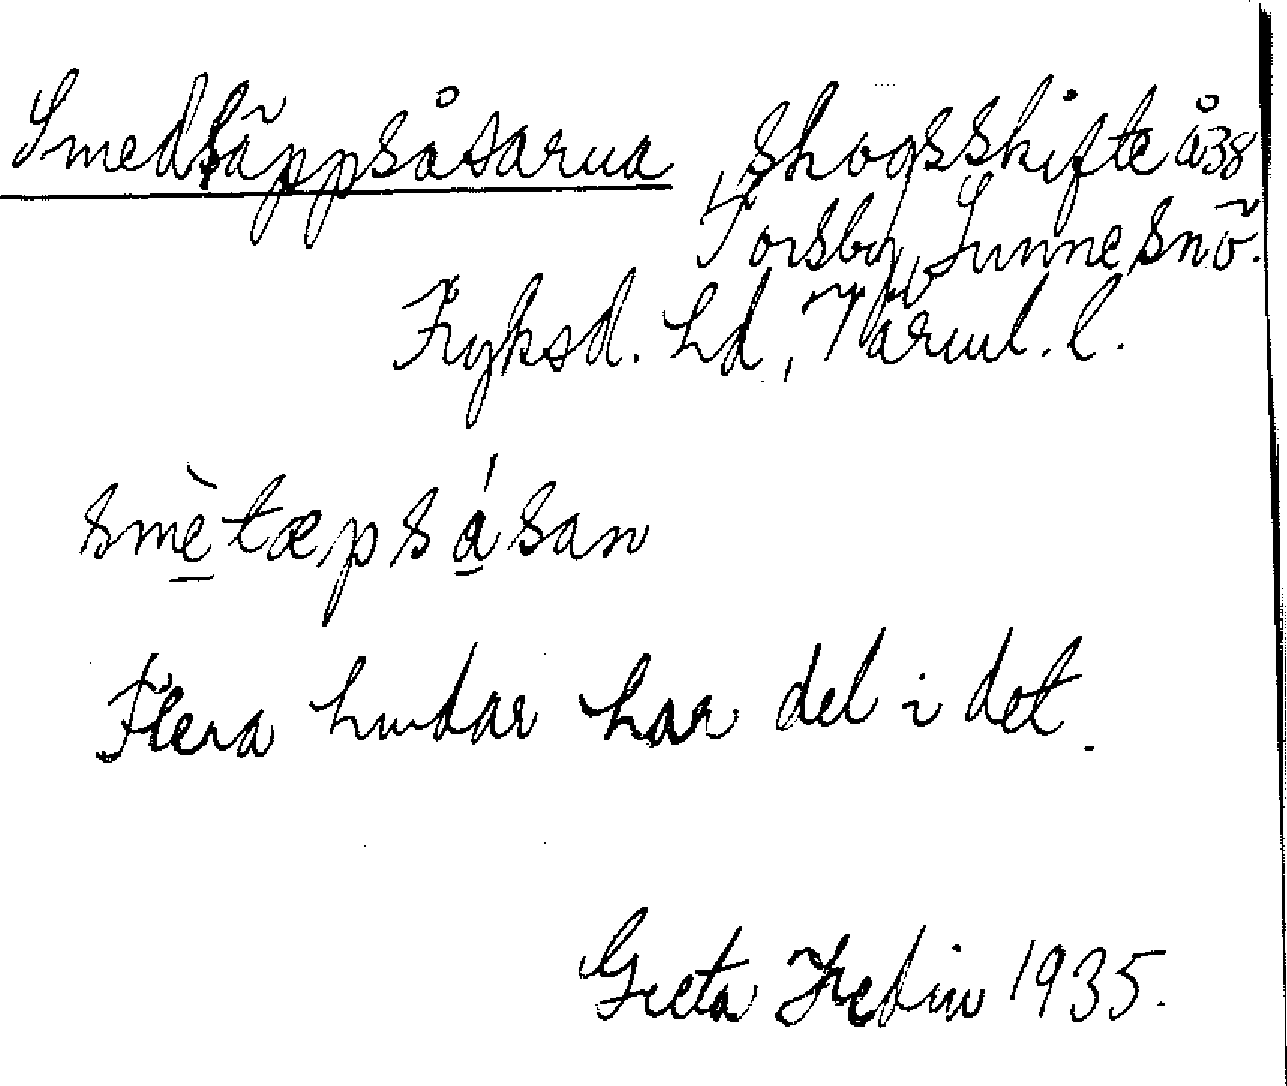 Smedtäppsåsarna, skogsskifte å 38
Torsby, Sunne sn ö.
Fryksd. hd, Värml. l.
smètæpsásan
Flera hundar har del i det.
Greta Hedin 1935.